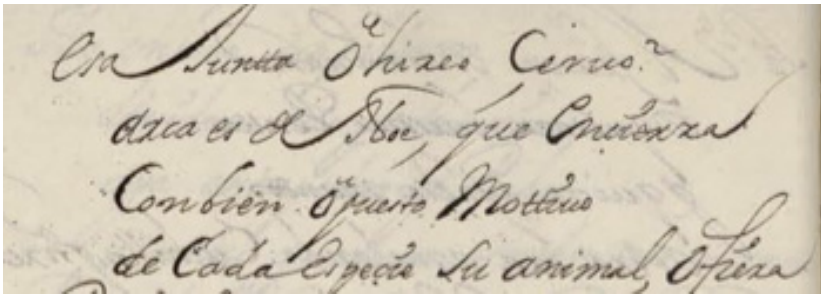 Esa Juntta q̃ hizo Ceruo.r
arca es de Noe, que Encierra
Con bien q̃ puesto Mottiuo
de Cada Especie Su animal, o fiera